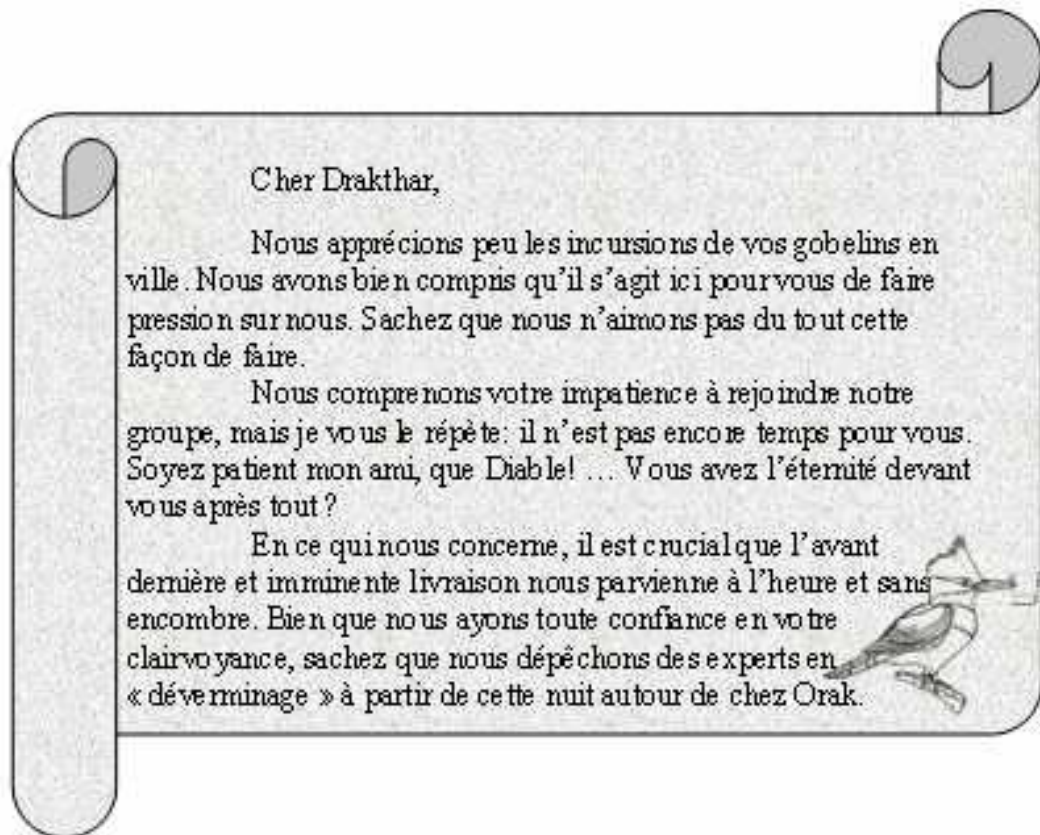 Cher Drakthar,
Nous apprécions peu les incursions de vos gobelins en
ville. Nous avons bien compris qu’il s’agit ici pour vous de faire
pression sur nous. Sachez que nous n’aimons pas du tout cette
façon de faire.
Nous comprenons votre impatience à rejoindre notre
groupe, mais je vous le répète: il n’est pas encore temps pour vous.
Soyez patient mon ami, que Diable! … Vous avez l’éternité devant
vous après tout ?
En ce qui nous concerne, il est crucial que l’avant
dernière et imminente livraison nous parvienne à l’heure et sans
encombre. Bien que nous ayons toute confiance en votre
clairvoyance, sachez que nous dépêchons des experts en
« déverminage » à partir de cette nuit autour de chez Orak.